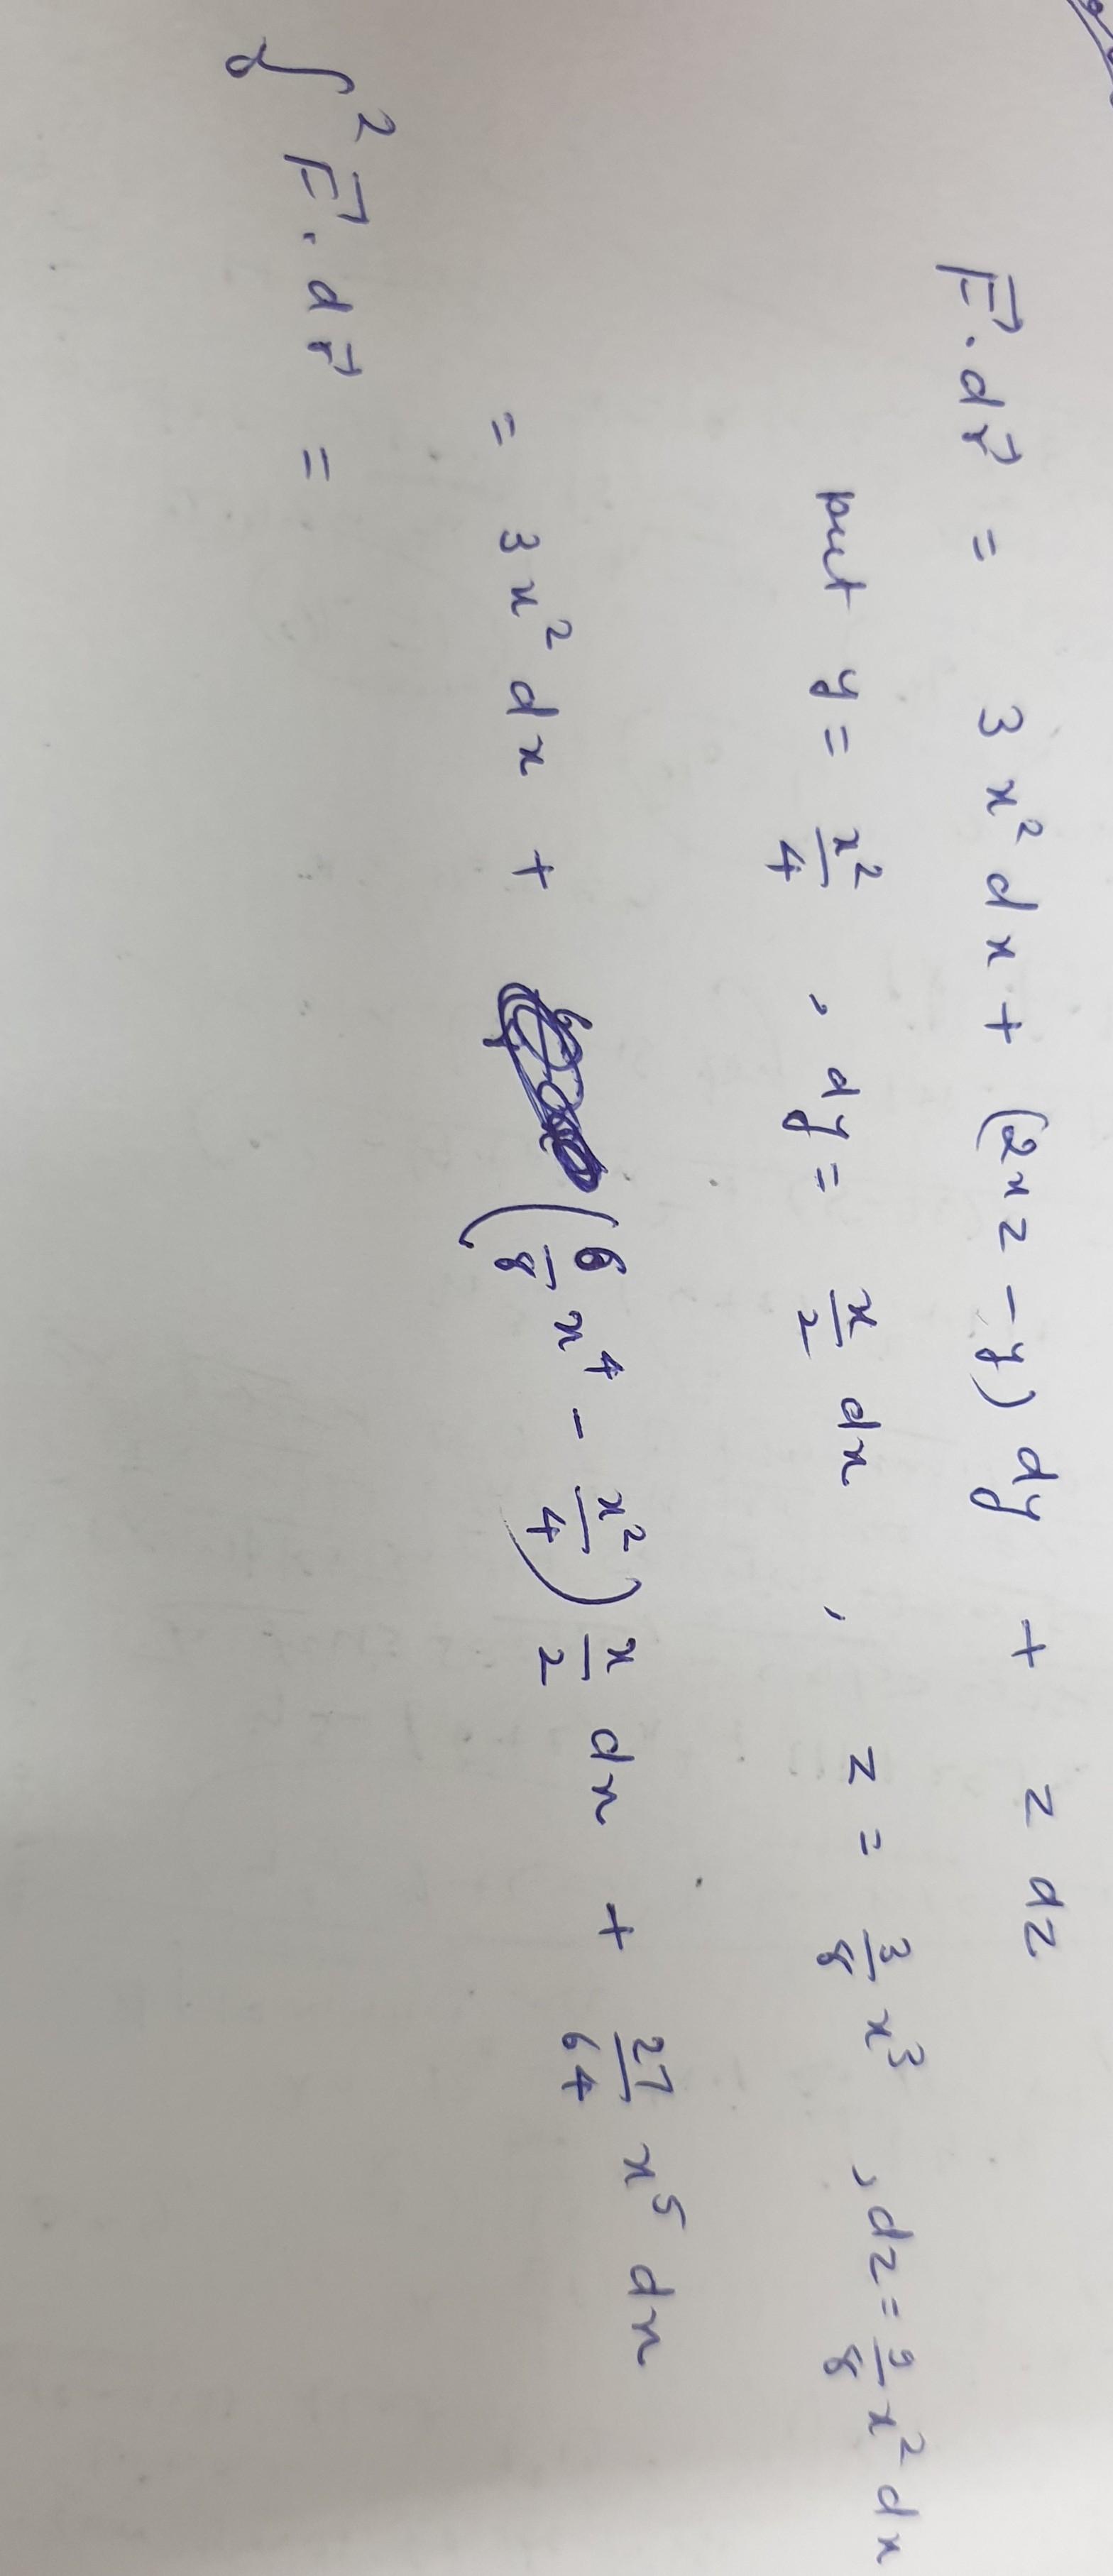 F⃗. dr⃗ = 3x² dx + (2xz - y) dy + z dz
put y = x²/4 , dy = x/2 dx , z = 3/8 x³ , dz = 9/8 x² dx
= 3x² dx + (6/8 x⁴ - x²/4) x/2 dx + 27/64 x⁵ dx
∫₀² F⃗. dr⃗ =